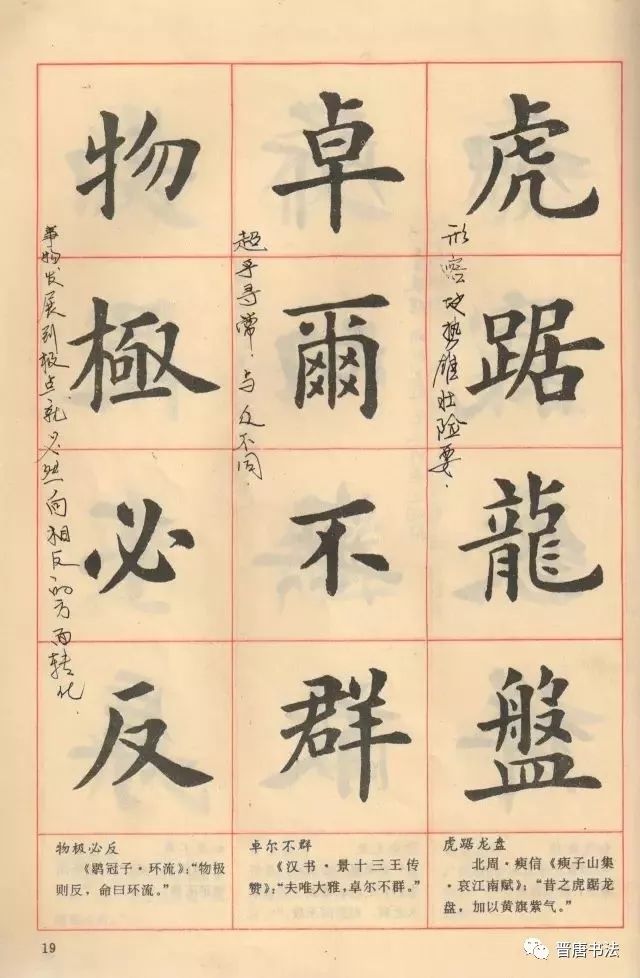 虎踞龍盤
形容地势雄壮险要.
卓爾不群
超乎寻常.与众不同.
物極必反
事物发展到极点.就必然向相反的方面转化.
虎踞龙盘
北周·瘐信《瘐子山集
·哀江南赋》：“昔之虎踞龙
盘，加以黄旗紫气。”
卓尔不群
《汉书·景十三王传
赞》：“夫唯大雅，卓尔不群。”
物极必反
《鹖冠子·环流》：“物极
则反，命曰环流。”
19
晋唐书法